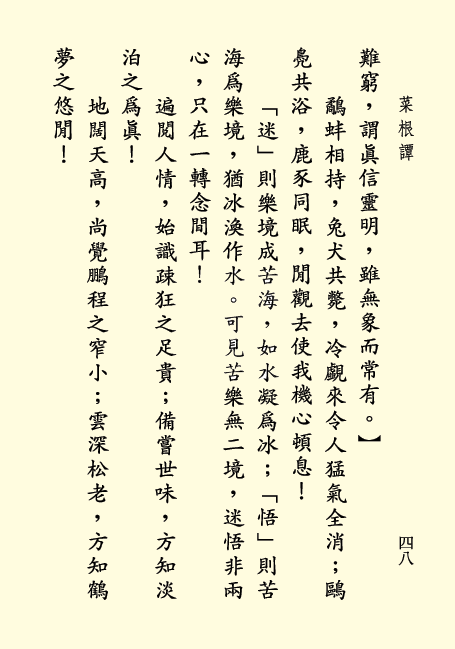 菜根譚
四八
難窮，謂眞信靈明，雖無象而常有。】
鷸蚌相持，兔犬共斃，冷觑來令人猛氣全消；鷗
鳧共浴，鹿豕同眠，閒觀去使我機心頓息！
「迷」則樂境成苦海，如水凝爲冰；「悟」則苦
海爲樂境，猶冰渙作水。可見苦樂無二境，迷悟非兩
心，只在一轉念間耳！
遍閱人情，始識疎狂之足貴；備嘗世味，方知淡
泊之爲眞！
地闊天高，尚覺鵬程之窄小；雲深松老，方知鶴
夢之悠閒！